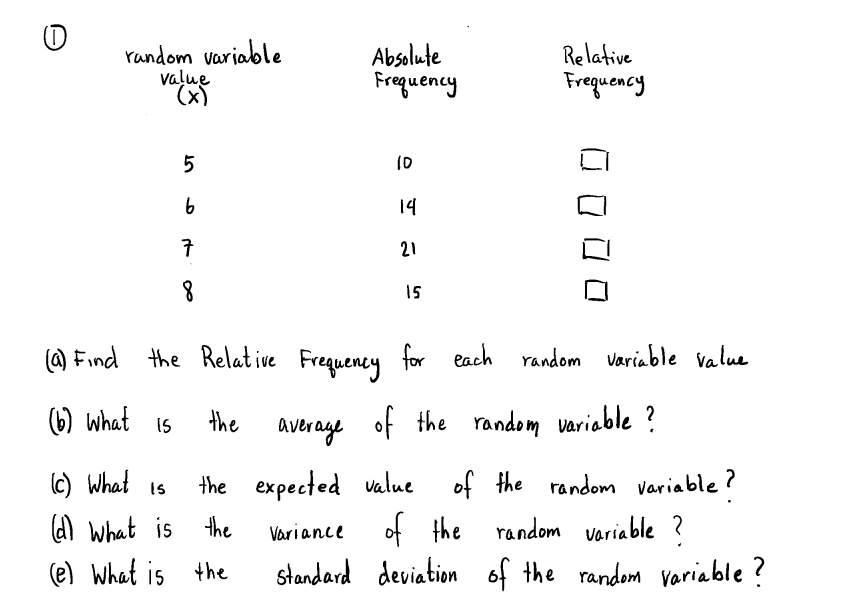 ①
random variable value (x) Absolute Frequency Relative Frequency
5 10 □
6 14 □
7 21 □
8 15 □
(a) Find the Relative Frequency for each random variable value
(b) What is the average of the random variable?
(c) What is the expected value of the random variable?
(d) What is the variance of the random variable?
(e) What is the standard deviation of the random variable?